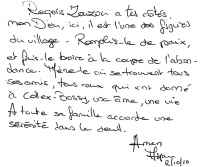 Reçois Zanzan a tes côtés,
mon Dieu, ici, il est l'une des figures
du village - Remplis-le de paix,
et fais-le boire à la coupe de l'abon-
dance. Mène-le où se trouvent tous
ses amis, tous ceux qui ont donné
à Cotex-Bossy, une âme, une vie
A toute sa famille accorde une
sérénité dans le deuil.
Amen
2/10/10